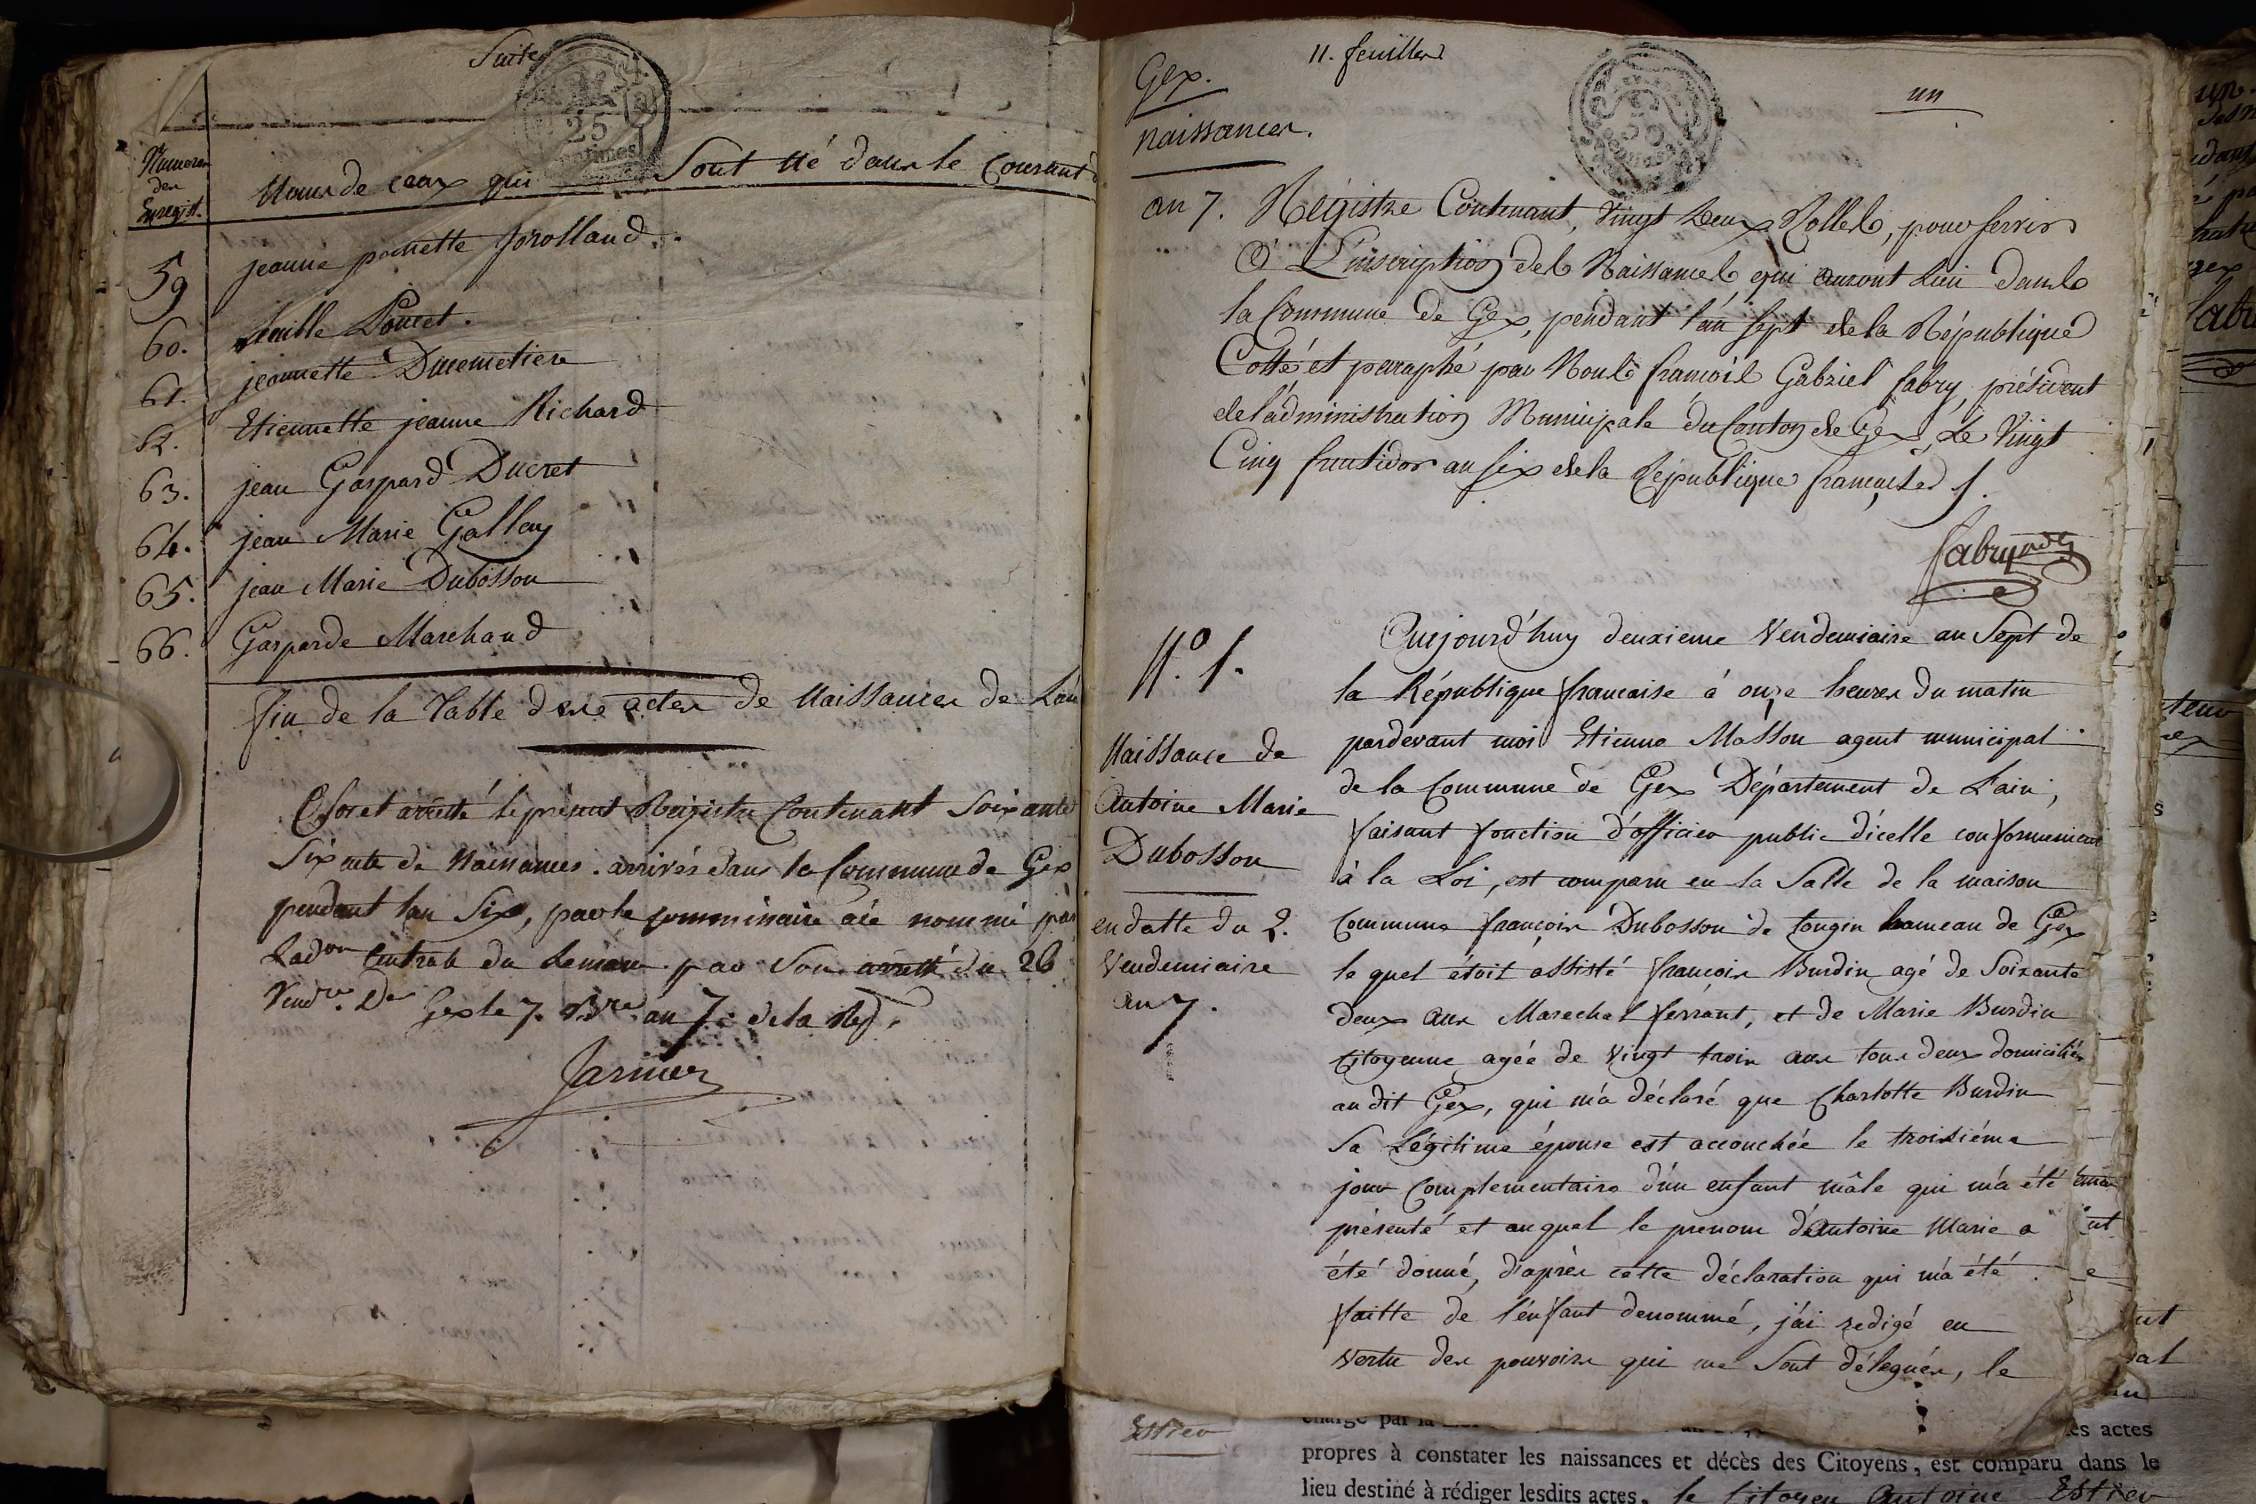 Suite
25
centimes
Numeros
des
Enregist.
Noms de ceux qui sont né dans le Courant
59 jeanne pernette
60. Poncet.
61. jeannette Ducemetiere
62. Etiennette jeanne Richard
63. jean Gaspard Ducret
64. jean Marie Gallay
65. jean Marie Dubosson
66. Gasparde Marchand
fin de la Table des actes de Naissances de L'an
Clos et arretté le présent Régistre Contenant Soixante
Six acte de Naissances arrivés dans la Commune de Gex
pendant l'an Six, par le commissaire nommé par
L'adon Centrale du Leman par son arretté du 26
Vendre. Der Gex le 7. an 7. de la Rep.
11. feuilles
Gex.
un
naissances.
an 7. Régistre Contenant, Vingt Deux Rolles, pour servir
à L'inscription des Naissances qui auront Lieu dans
la Commune de Gex, pendant l'an sept de la République
Cotté et paraphé par Nous françois Gabriel fabry, président
de l'administration Municipale du Canton de Gex, Le Vingt
Cinq fructidor an six de la République française /.
fabry
N.o 1.
Naissance de
Antoine Marie
Dubosson
en datte du 2.
Vendemiaire
an 7.
Aujourd'huy deuxieme Vendemiaire an Sept de
la République francaise à onze heures du matin
pardevant moi Etienne Masson agent municipal
de la Commune de Gex Département de L'ain,
faisant fonction d'officier public d'icelle conformement
à la Loi, est comparu en la Salle de la maison
Commune françois Dubosson de tougin hameau de Gex
le quel étoit assisté françois Burdin agé de Soixante
deux ans Marechal ferrant, et de Marie Burdin
Citoyenne agée de vingt trois ans tous deux domiciliés
au dit Gex, qui m'a déclaré que Charlotte Burdin
Sa Légitime épouse est accouchée le troisiéme
jour Complementaire d'un enfant mâle qui m'a été
présenté et auquel le prenom d'Antoine Marie a
été donné, d'après cette déclaration qui m'a été
faitte de l'enfant denommé, j'ai redigé en
vertu des pouvoirs qui me Sont délegués, le
Estiev
es actes
propres à constater les naissances et décès des Citoyens, est comparu dans le
lieu destiné à rédiger lesdits actes, le Citoyen Antoine Estiev